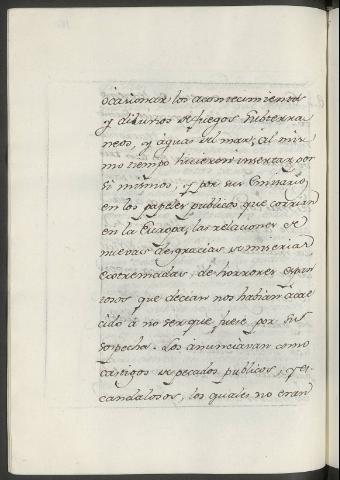 ocasionar los acontecimientos
y diluvios de fuegos subterra
neos, y aguas del mar; al mis
mo tiempo hicieron insertar, por
si mismos, y por sus Emisarios
en los papeles publicos que corrian
en la Europa, las relaciones de
nuevas desgracias, de miserias
extremadas, de horrores espan
tosos que decian nos habian acae
cido á no ser que fuese por sus
sospechas. Los anunciavan como
castigos de pecados publicos, y es-
candalosos, los quales no eran